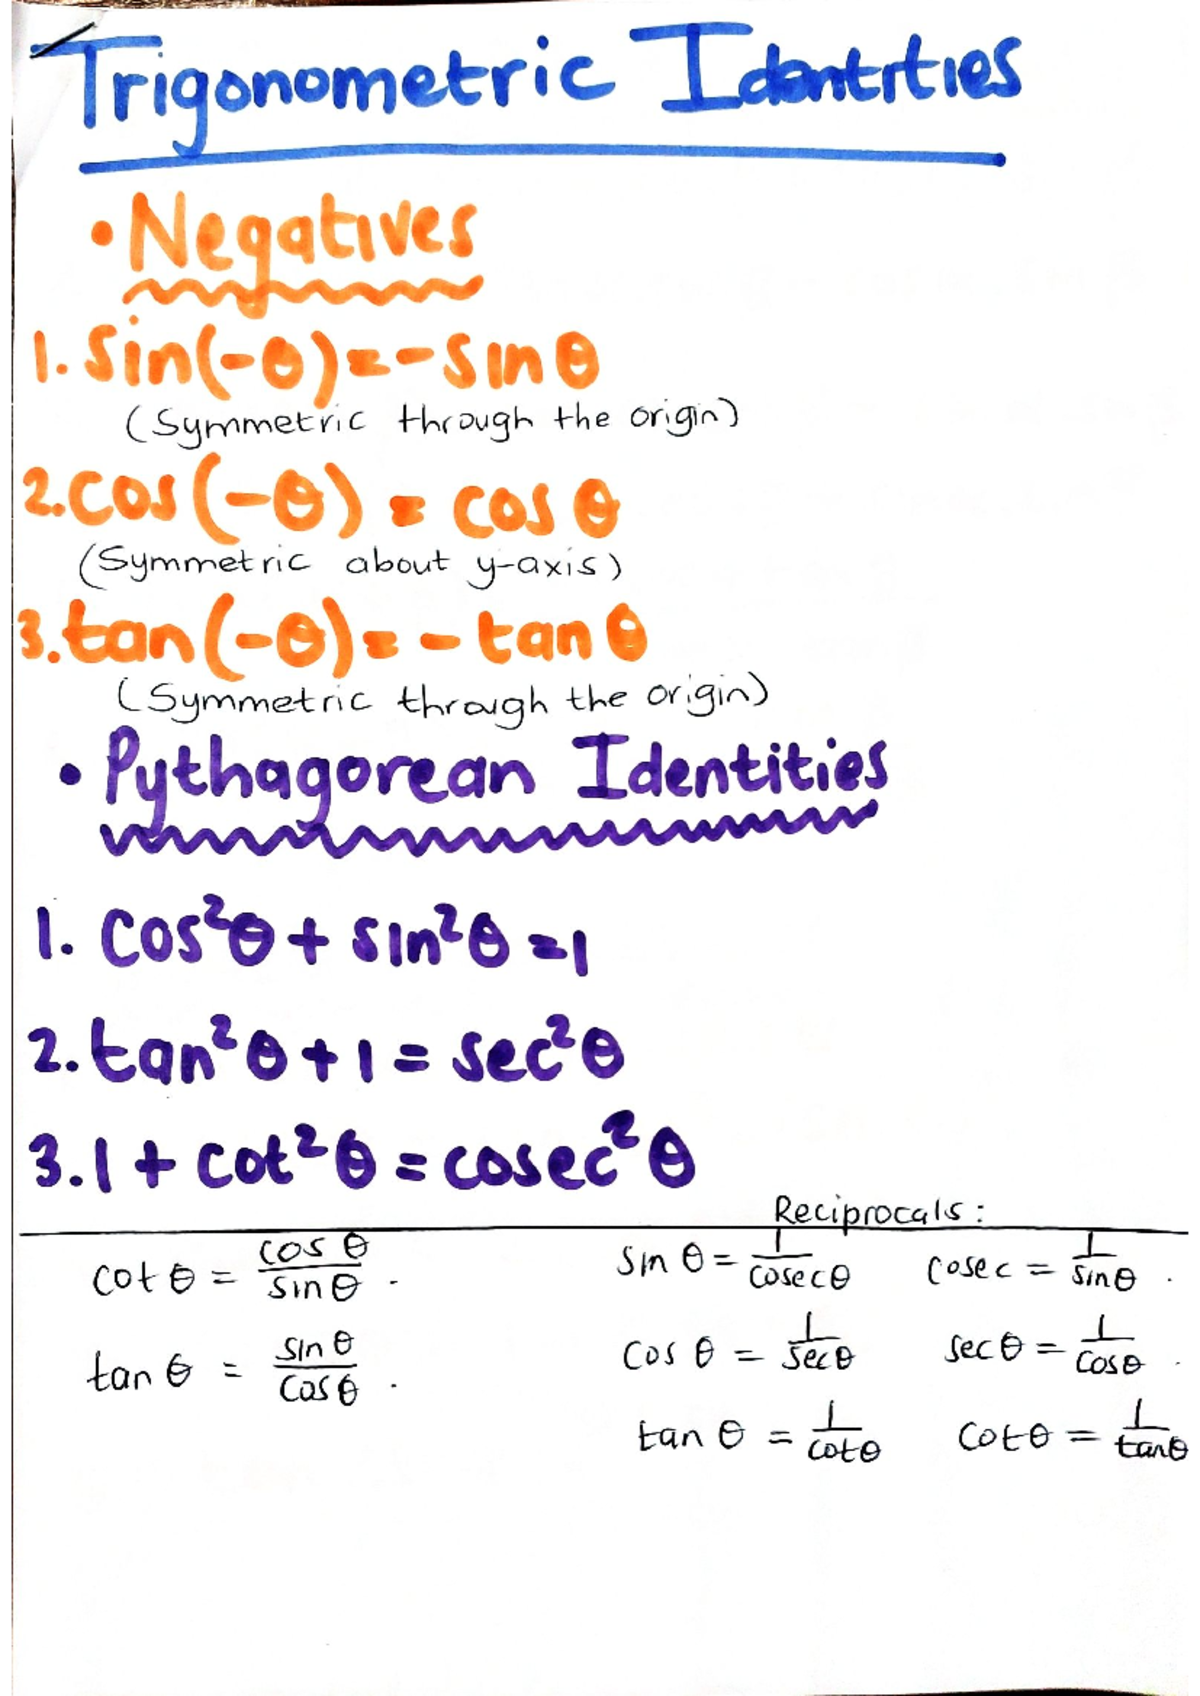 Trigonometric Identities
• Negatives
1. sin(-θ) = - sin θ
(Symmetric through the origin)
2. cos(-θ) = cos θ
(Symmetric about y-axis)
3. tan(-θ) = - tan θ
(Symmetric through the origin)
• Pythagorean Identities
1. cos²θ + sin²θ = 1
2. tan²θ + 1 = sec²θ
3. 1 + cot²θ = cosec²θ
Reciprocals:
cot θ = cos θ / sin θ .
tan θ = sin θ / cos θ .
sin θ = 1 / cosec θ
cosec = 1 / sin θ .
cos θ = 1 / sec θ
sec θ = 1 / cos θ .
tan θ = 1 / cot θ
cot θ = 1 / tan θ